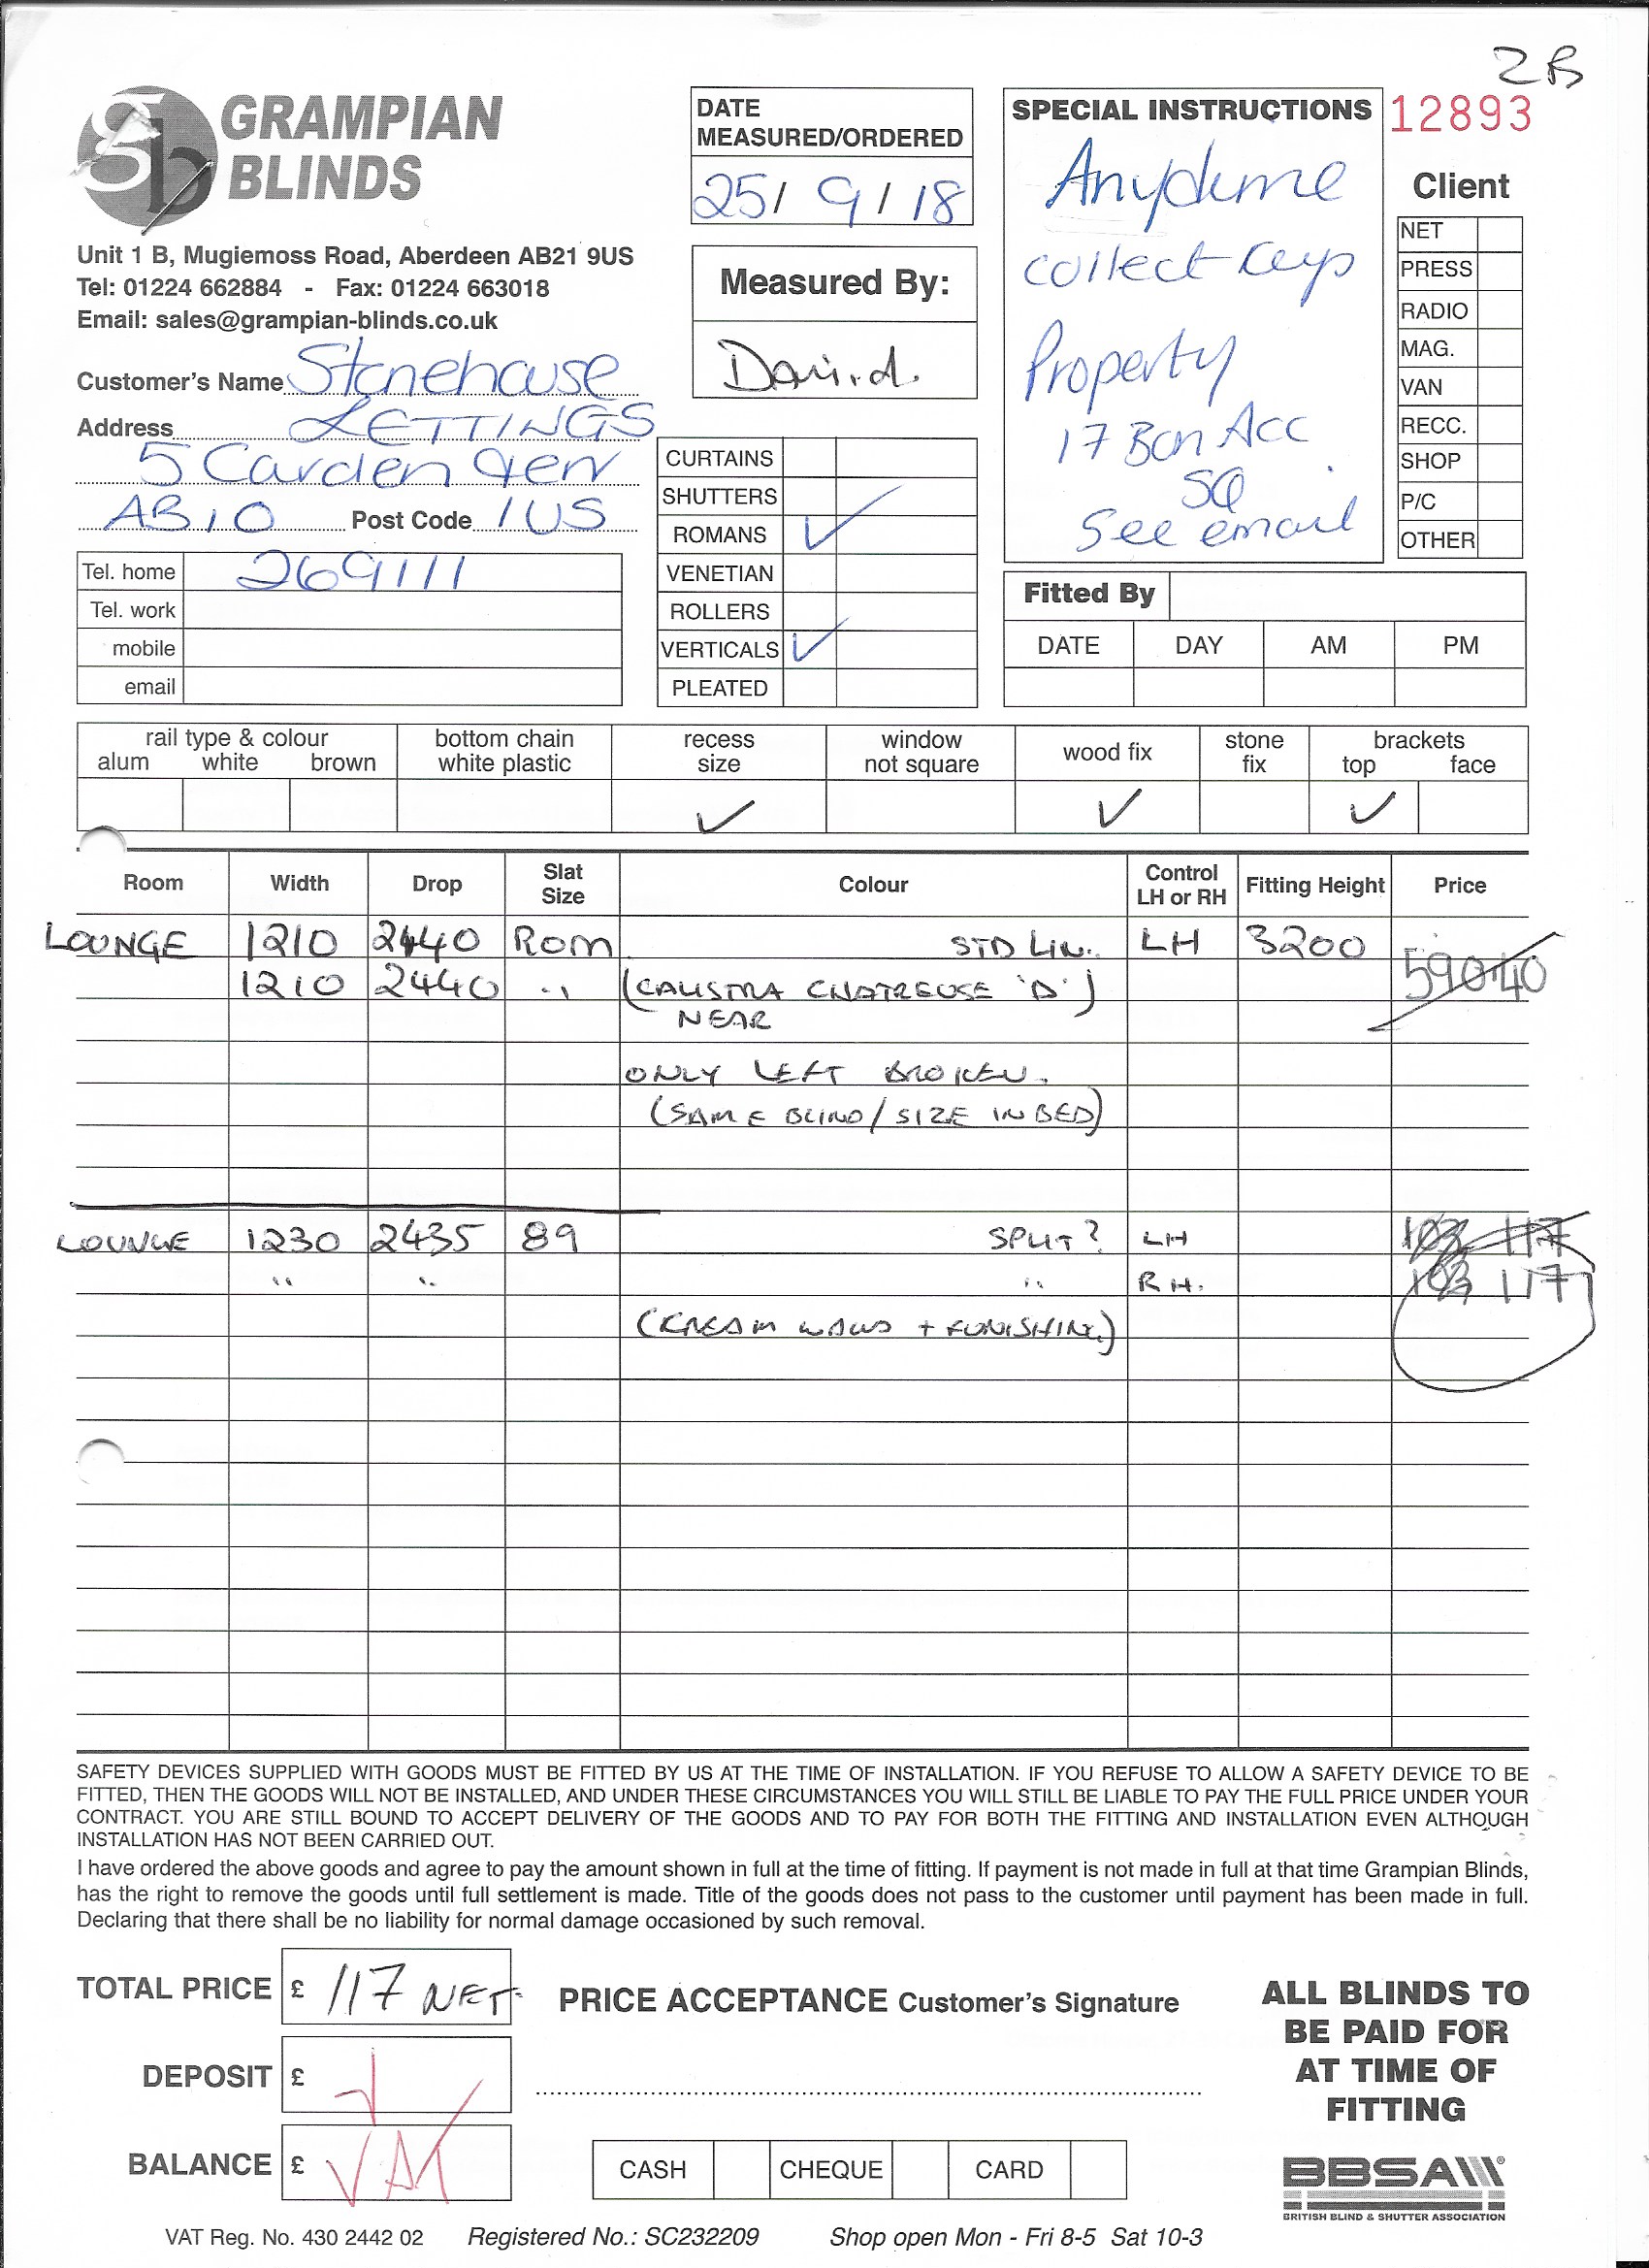 2B
GRAMPIAN
BLINDS
Unit 1 B, Mugiemoss Road, Aberdeen AB21 9US
Tel: 01224 662884 - Fax: 01224 663018
Email: sales@grampian-blinds.co.uk
Customer's Name Stonehouse
Address LETTINGS
5 Carden Terr
AB10 Post Code 1US
Tel. home 269111
Tel. work
mobile
email
DATE
MEASURED/ORDERED
25/ 9 / 18
Measured By:
David.
CURTAINS
SHUTTERS
ROMANS ✓
VENETIAN
ROLLERS
VERTICALS ✓
PLEATED
SPECIAL INSTRUCTIONS
Anytime
collect keys
Property
17 Bon Acc
SQ
See email
12893
Client
NET
PRESS
RADIO
MAG.
VAN
RECC.
SHOP
P/C
OTHER
Fitted By
DATE DAY AM PM
rail type & colour
alum white brown
bottom chain
white plastic
recess
size
✓
window
not square
wood fix
✓
stone
fix
brackets
top face
✓
Room Width Drop Slat Size Colour Control LH or RH Fitting Height Price
LOUNGE 1210 2440 Rom STD LIN. LH 3200
1210 2440 " (CALISTRA CHATREUSE 'D') 590.40
NEAR
ONLY LEFT BROKEN.
(SAME BLIND / SIZE IN BED)
LOUNGE 1230 2435 89 SPLIT? LH 103 117
" " " RH. 103 117
(CREAM WALLS + FUNISHING)
SAFETY DEVICES SUPPLIED WITH GOODS MUST BE FITTED BY US AT THE TIME OF INSTALLATION. IF YOU REFUSE TO ALLOW A SAFETY DEVICE TO BE
FITTED, THEN THE GOODS WILL NOT BE INSTALLED, AND UNDER THESE CIRCUMSTANCES YOU WILL STILL BE LIABLE TO PAY THE FULL PRICE UNDER YOUR
CONTRACT. YOU ARE STILL BOUND TO ACCEPT DELIVERY OF THE GOODS AND TO PAY FOR BOTH THE FITTING AND INSTALLATION EVEN ALTHOUGH
INSTALLATION HAS NOT BEEN CARRIED OUT.
I have ordered the above goods and agree to pay the amount shown in full at the time of fitting. If payment is not made in full at that time Grampian Blinds,
has the right to remove the goods until full settlement is made. Title of the goods does not pass to the customer until payment has been made in full.
Declaring that there shall be no liability for normal damage occasioned by such removal.
TOTAL PRICE £ 117 NET.
DEPOSIT £ +
BALANCE £ VAT
PRICE ACCEPTANCE Customer's Signature
CASH CHEQUE CARD
ALL BLINDS TO
BE PAID FOR
AT TIME OF
FITTING
BBSA
BRITISH BLIND & SHUTTER ASSOCIATION
VAT Reg. No. 430 2442 02 Registered No.: SC232209 Shop open Mon - Fri 8-5 Sat 10-3